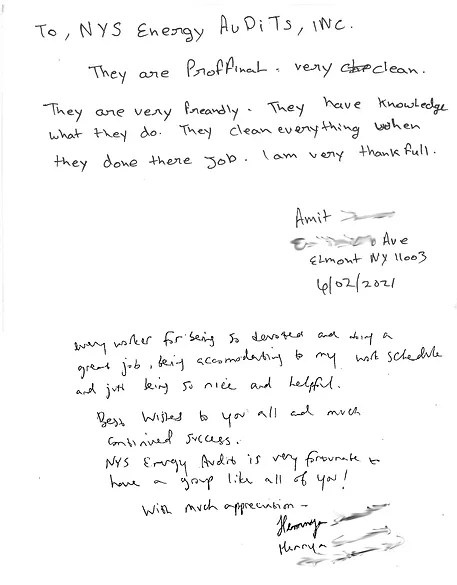 To, NYS Energy AuDiTs, INC.
They are Proffinal. very clean.
They are very freandly. They have knowledge
what they do. They clean everything when
they done there job. I am very thankfull.
Amit
Ave
Elmont NY 11003
6/02/2021
every worker for being so devoted and doing a
great job, being accomodating to my work schedule
and just being so nice and helpful.
Best Wishes to you all and much
continued success.
NYS Energy Audits is very fortunate to
have a group like all of you!
With much appreciation -